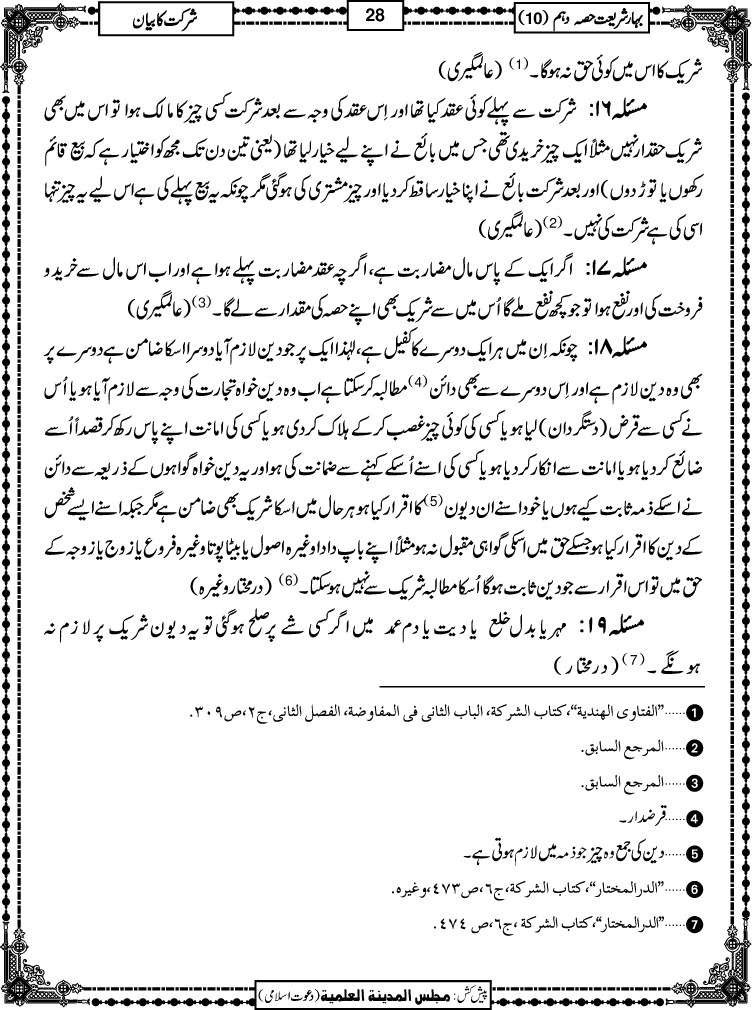 بہار شریعت حصہ دہم (10)
28
شرکت کا بیان
شریک کا اس میں کوئی حق نہ ہوگا۔(1) (عالمگیری)
مسئلہ ۱۶: شرکت سے پہلے کوئی عقد کیا تھا اور اِس عقد کی وجہ سے بعد شرکت کسی چیز کا مالک ہوا تو اس میں بھی
شریک حقدار نہیں مثلاً ایک چیز خریدی تھی جس میں بائع نے اپنے لیے خیار لیا تھا (یعنی تین دن تک مجھ کو اختیار ہے کہ بیع قائم
رکھوں یا توڑ دوں) اور بعد شرکت بائع نے اپنا خیار ساقط کر دیا اور چیز مشتری کی ہوگئی مگر چونکہ یہ بیع پہلے کی ہے اس لیے یہ چیز تنہا
اسی کی ہے شرکت کی نہیں۔(2) (عالمگیری)
مسئلہ ۱۷: اگر ایک کے پاس مال مضاربت ہے، اگرچہ عقد مضاربت پہلے ہوا ہے اور اب اس مال سے خرید و
فروخت کی اور نفع ہوا تو جو کچھ نفع ملے گا اُس میں سے شریک بھی اپنے حصہ کی مقدار سے لے گا۔(3) (عالمگیری)
مسئلہ ۱۸: چونکہ اِن میں ہر ایک دوسرے کا کفیل ہے، لہٰذا ایک پر جو دین لازم آیا دوسرا اسکا ضامن ہے دوسرے پر
بھی وہ دین لازم ہے اور اِس دوسرے سے بھی دائن(4) مطالبہ کر سکتا ہے اب وہ دین خواہ تجارت کی وجہ سے لازم آیا ہو یا اُس
نے کسی سے قرض (دستگرداں) لیا ہو یا کسی کی کوئی چیز غصب کر کے ہلاک کر دی ہو یا کسی کی امانت اپنے پاس رکھ کر قصداً اُسے
ضائع کر دیا ہو یا امانت سے انکار کر دیا ہو یا کسی کی اسنے اُسکے کہنے سے ضمانت کی ہو اور یہ دین خواہ گواہوں کے ذریعہ سے دائن
نے اسکے ذمہ ثابت کیے ہوں یا خود اسنے ان دیون(5) کا اقرار کیا ہو ہر حال میں اسکا شریک بھی ضامن ہے مگر جبکہ اسنے ایسے شخص
کے دین کا اقرار کیا ہو جسکے حق میں اسکی گواہی مقبول نہ ہو مثلاً اپنے باپ دادا وغیرہ اصول یا بیٹا پوتا وغیرہ فروع یا زوج یا زوجہ کے
حق میں تو اس اقرار سے جو دین ثابت ہوگا اُسکا مطالبہ شریک سے نہیں ہو سکتا۔(6) (درمختار وغیرہ)
مسئلہ ۱۹: مہر یا بدل خلع یا دیت یا دم عمد میں اگر کسی شے پر صلح ہوگئی تو یہ دیون شریک پر لازم نہ
ہونگے۔(7) (درمختار)
1......"الفتاوی الھندیة"، کتاب الشرکة، الباب الثانی فی المفاوضة، الفصل الثانی، ج۲، ص۳۰۹.
2......المرجع السابق.
3......المرجع السابق.
4......قرضدار۔
5......دین کی جمع وہ چیز جو ذمہ میں لازم ہوتی ہے۔
6......"الدرالمختار"، کتاب الشرکة، ج۶، ص۴۷۳، وغیرہ.
7......"الدرالمختار"، کتاب الشرکة، ج۶، ص ۴۷۴.
پیش کش: مجلس المدینة العلمیة (دعوت اسلامی)